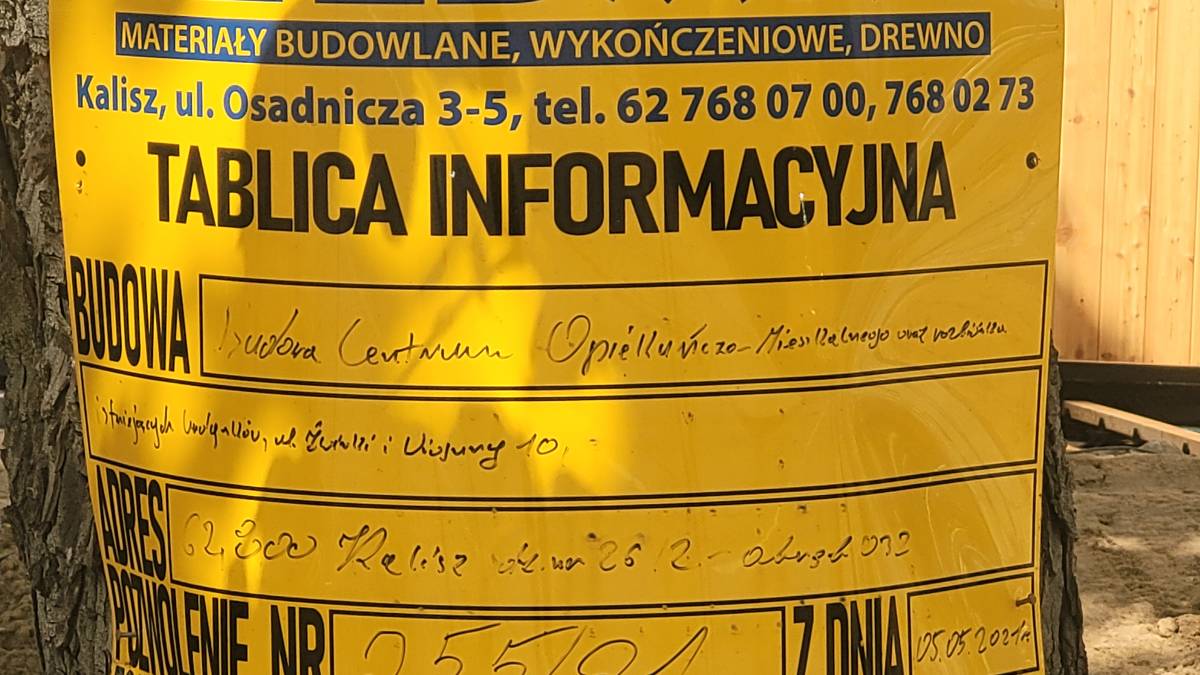 MATERIAŁY BUDOWLANE, WYKOŃCZENIOWE, DREWNO
Kalisz, ul. Osadnicza 3-5, tel. 62 768 07 00, 768 02 73
TABLICA INFORMACYJNA
BUDOWA budowa Centrum Opiekuńczo-Mieszkalnego oraz rozbiórka
istniejących budynków, ul. Żwirki i Wigury 10,
ADRES 62,800 Kalisz dz. nr 26/2 - obręb 032
POZWOLENIE NR 255/21 Z DNIA 05.05.2021r